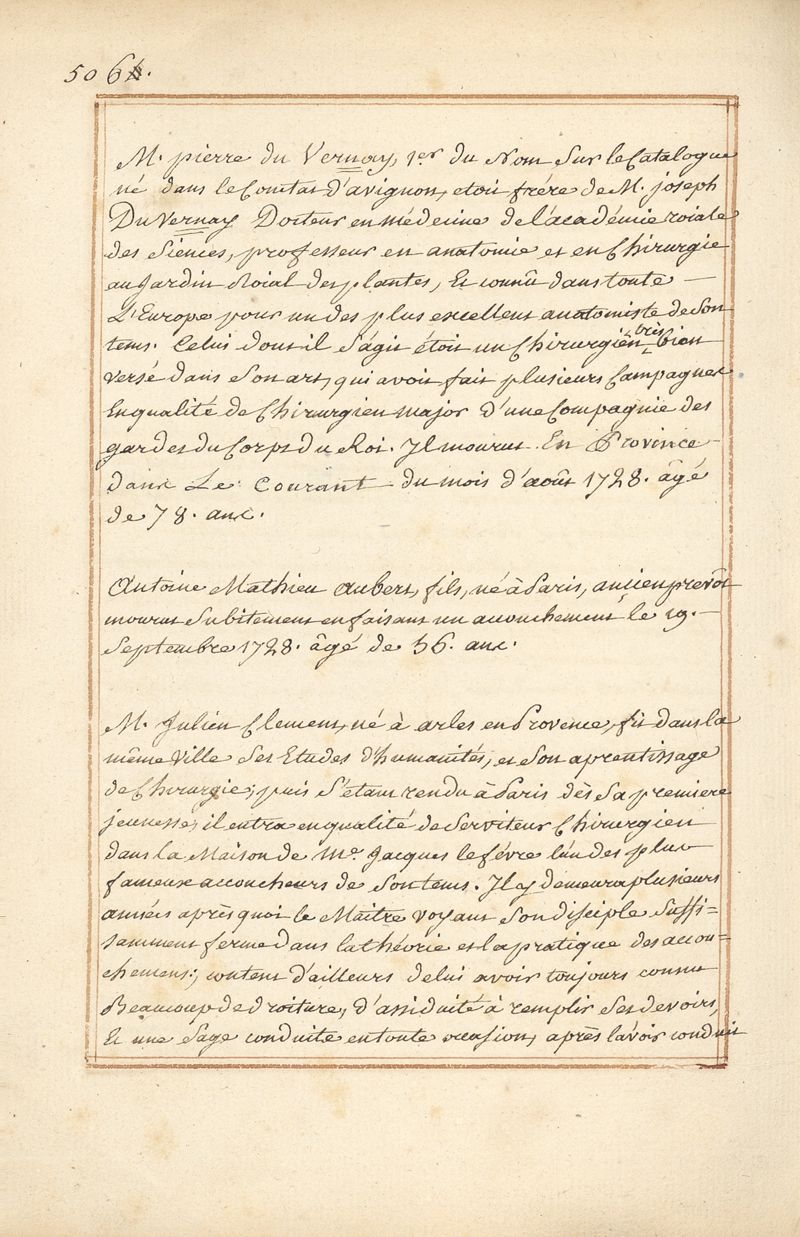 506.
M. pierre du Vernay, 1er du Nom Sur le Catalogue
né dans le Comtat d'avignon, etoit frére de M. joseph
Du Vernay Docteur en médecine de l'académie roiale
des Siences, professeur en anatomie et en Chirurgie
au Jardin Roial des plantes, Et connû dans toute —
L'Europe pour un des plus excellent anatomiste de Son
tems. Celui dont il S'agit étoit un Chirurgien très bien
versé dans Son art, qui avoit fait plusieurs Campagnes
En qualité de Chirurgien major d'une Compagnie des
gardes du Corps du Roi. Il mourut En Province —
dans Le Courant du mois d'août 1728. âgé
de 78. ans.
Antoine Mathieu Aubert, fils, né à Paris, ancien prevôt
mourut Subitement en faisant un acouchement, le 19. —
Septembre 1728. âgé de 36. ans.
M. Julien Clement, né à arles en Provence, fit dans la
même Ville Ses Etudes d'humanités, et Son aprentissage
de Chirurgie; puis S'étant rendu à Paris dès Sa premiere
jeunesse, il entra en qualité de Serviteur Chirurgien
dans la Maison de Me. Jacques lefévre l'un des plus
fameux accoucheurs de Son tems. Il y demeura plusieurs
années après quoi le Maître voyant Son disciple Suffi=
samment ferme dans la théorie et la pratique des accou=
chemens; content d'ailleurs de lui avoir toujours connu
Beaucoup de droiture, d'assiduité à remplir Ses devoirs,
Et une Sage conduite en toute occasion, après l'avoir conduit